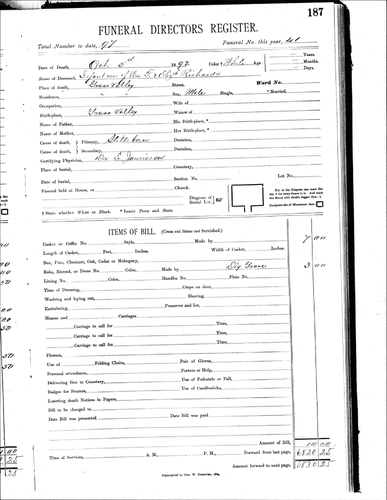 187
FUNERAL DIRECTORS REGISTER.
Total Number to date, 97 Funeral No. this year, 41
Date of Death, Oct 5th 1897 Color † White Age Years. Months. Days.
Name of Deceased, Infant son of Wm F & Elizth Richards
Place of death, Grass Valley Ward No.
Residence, Sex, Male Single, * Married,
Occupation, Wife of
Birthplace, Grass Valley Widow of
Name of Father, His Birthplace, *
Name of Mother, Her Birthplace, *
Cause of death, Primary, Still born Duration,
Cause of death, Secondary, Duration,
Certifying Physician, Dr E. Jamieson
Place of burial, Cemetery,
Date of burial, Section No. Lot No.
Funeral held at House, or Church.
Diagram of Lot or Vault
† State whether White or Black. * Insert Town and State.
ITEMS OF BILL. (Cross out items not furnished.)
Casket or Coffin No. Style, Made by 7 00
Length of Casket, Feet, Inches. Width of Casket, Inches.
Box, Pine, Chestnut, Oak, Cedar or Mahogany, Dig Grave 3 00
Robe, Shroud, or Dress No. Color, Made by
Lining No. Color, Handles No. Plate No.
Time of Dressing, Crape on door,
Washing and laying out, Shaving,
Embalming, Preserved and Ice,
Hearse and Carriages.
Carriage to call for Time,
Carriage to call for Time,
Carriage to call for Time,
Flowers,
Use of Folding Chairs, Pair of Gloves,
Personal attendance, Porters or Help,
Delivering Box to Cemetery, Use of Pedestals or Pall,
Badges for Bearers, Use of Candlesticks,
Inserting death Notices in Papers,
Bill to be changed to
Date Bill was presented Date Bill was Paid
Amount of Bill, 10 00
Amount forward from last page, 6820 25
Time of Services, A. M., P. M., Amount forward to next page, 6830 25